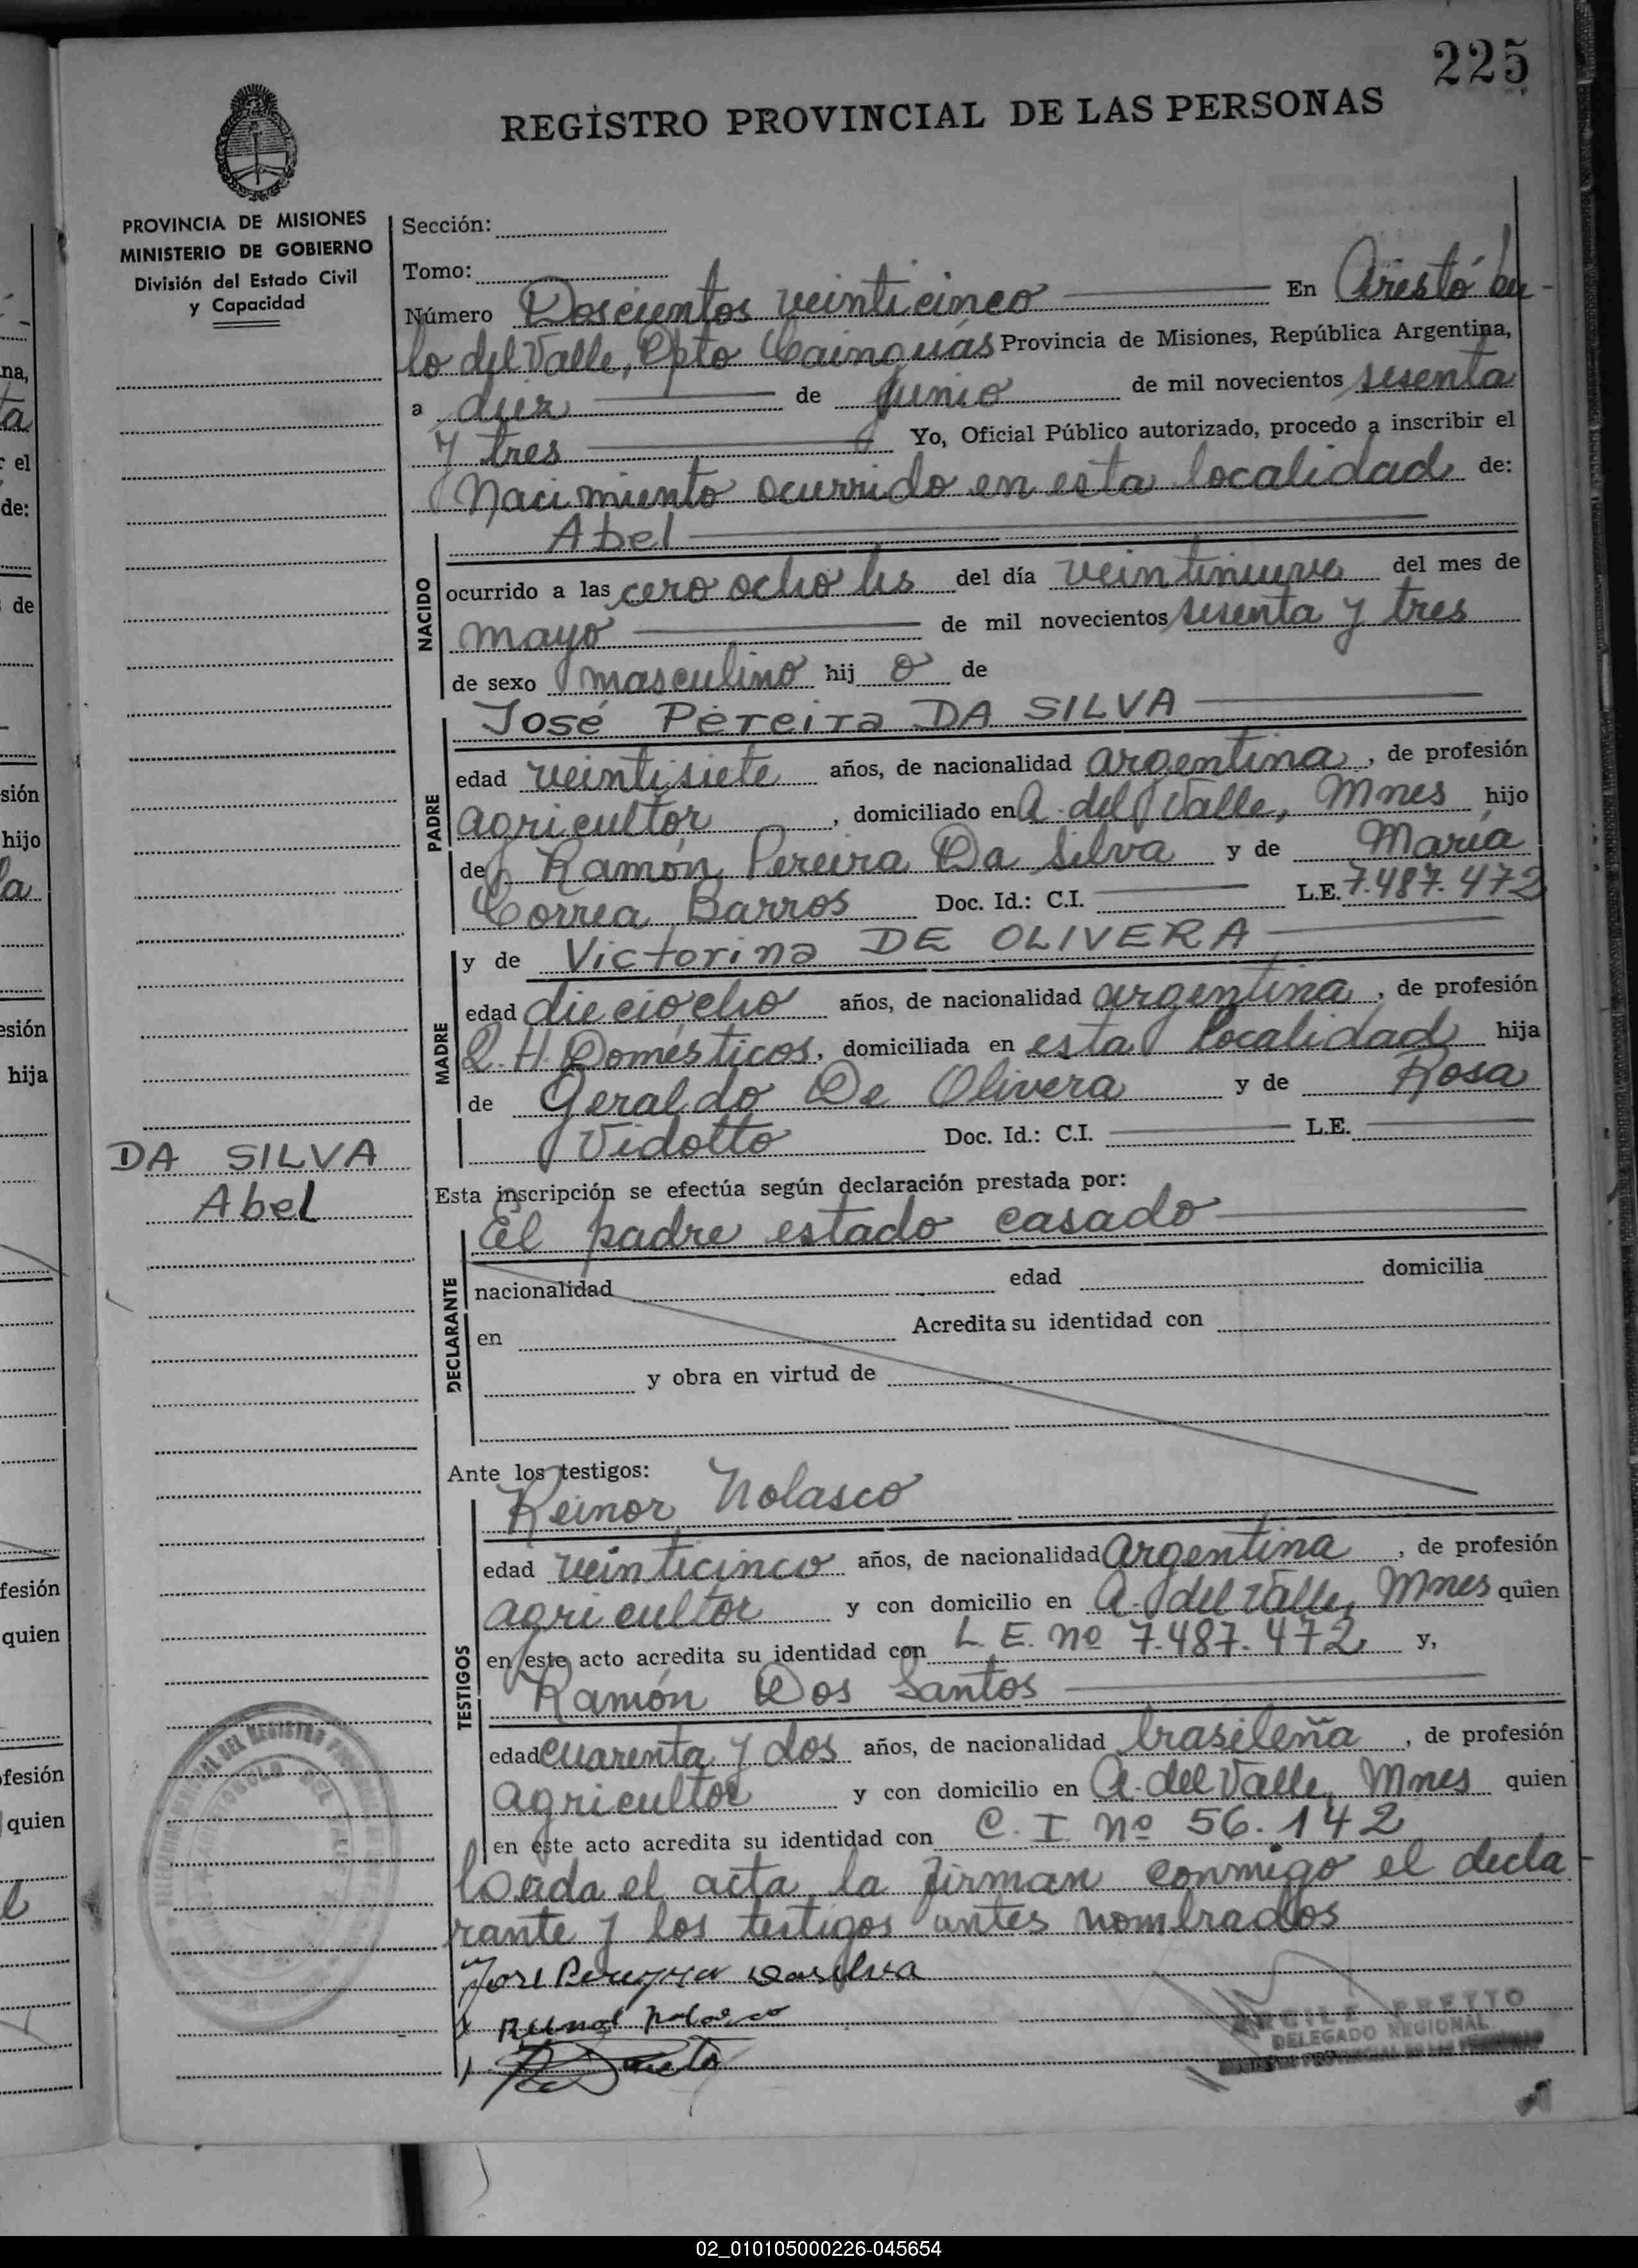 225
REGISTRO PROVINCIAL DE LAS PERSONAS
PROVINCIA DE MISIONES
MINISTERIO DE GOBIERNO
División del Estado Civil
y Capacidad
Sección:
Tomo:
Número Doscientos veinticinco En Aristóbu-
lo del Valle, Dpto Cainguás Provincia de Misiones, República Argentina,
a diez de junio de mil novecientos sesenta
y tres Yo, Oficial Público autorizado, procedo a inscribir el
Nacimiento ocurrido en esta localidad de:
NACIDO
Abel
ocurrido a las cero ocho hs del día veintinueve del mes de
mayo de mil novecientos sesenta y tres
de sexo masculino hij o de
PADRE
José Pereira DA SILVA
edad veintisiete años, de nacionalidad argentina, de profesión
agricultor, domiciliado en A. del Valle, Mnes hijo
de Ramón Pereira Da Silva y de María
Correa Barros Doc. Id.: C.I. L.E. 7.487.472
MADRE
y de Victorina DE OLIVERA
edad dieciocho años, de nacionalidad argentina, de profesión
Q.H. Domésticos, domiciliada en esta localidad hija
de Geraldo De Olivera y de Rosa
Vidotto Doc. Id.: C.I. L.E.
DA SILVA
Abel
Esta inscripción se efectúa según declaración prestada por:
DECLARANTE
El padre estado casado
nacionalidad edad domicilia
en Acredita su identidad con
y obra en virtud de
Ante los testigos:
TESTIGOS
Reinor Nolasco
edad veinticinco años, de nacionalidad argentina, de profesión
agricultor y con domicilio en A. del Valle, Mnes quien
en este acto acredita su identidad con L. E. nº 7.487.472 y,
Ramón Dos Santos
edad cuarenta y dos años, de nacionalidad brasileña, de profesión
agricultor y con domicilio en A. del Valle, Mnes quien
en este acto acredita su identidad con C. I. nº 56.142
Leída el acta, la firman conmigo el decla-
rante y los testigos antes nombrados
José Pereyra Dasilva
PRETTO
DELEGADO REGIONAL
02_010105000226-045654